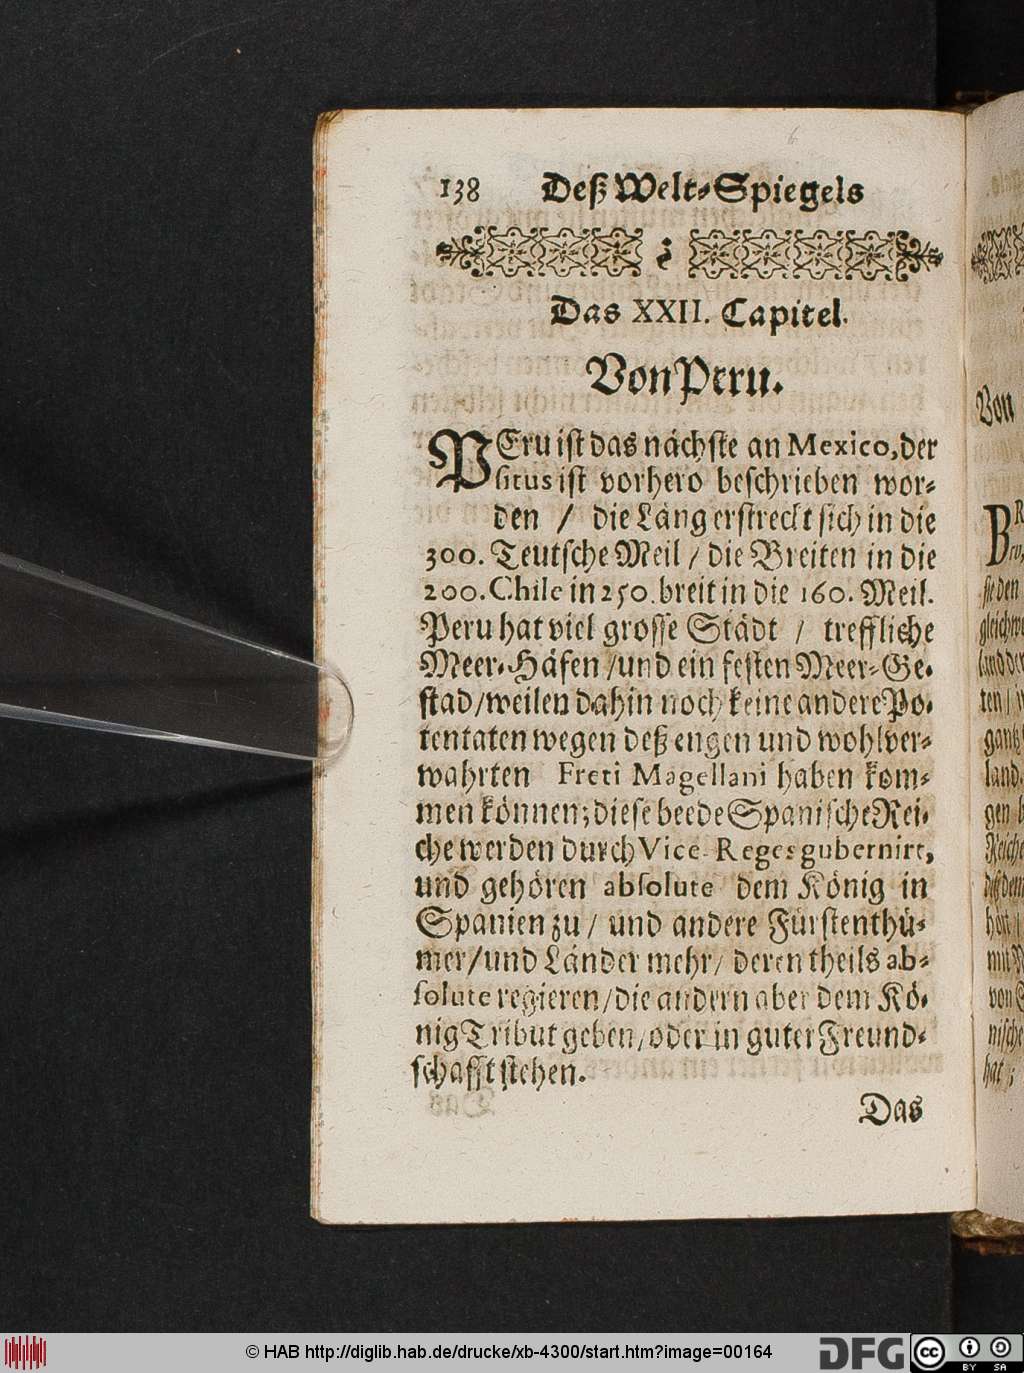 138 Deß Welt-Spiegels
Das XXII. Capitel.
Von Peru.
PEru ist das nächste an Mexico, der
situs ist vorhero beschrieben wor-
den / die Läng erstreckt sich in die
300. Teutsche Meil / die Breiten in die
200. Chile in 250. breit in die 160. Meil.
Peru hat viel grosse Städt / treffliche
Meer-Häfen / und ein festen Meer-Ge-
stad / weilen dahin noch keine andere Po-
tentaten wegen deß engen und wohlver-
wahrten Freti Magellani haben kom-
men können; diese beede Spanische Rei-
che werden durch Vice-Reges gubernirt,
und gehören absolute dem König in
Spanien zu / und andere Fürstenthü-
mer / und Länder mehr / deren theils ab-
solute regieren / die andern aber dem Kö-
nig Tribut geben / oder in guter Freund-
schafft stehen.
Das
Von
sie den
gleichwo
land der
ten /
gantz
land.
gen
Reiche
von
nische
hat ;
© HAB http://diglib.hab.de/drucke/xb-4300/start.htm?image=00164
DFG
cc
BY SA